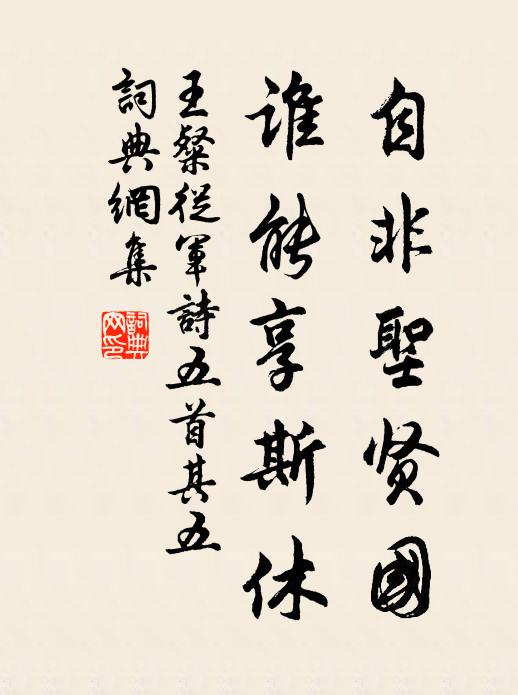 自非聖贤國
誰能享斯休
王粲從軍詩五首其五
詞典網集
詞典網印